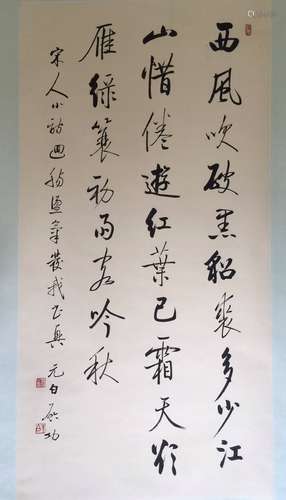 西風吹破黑貂裘多少江
山惜倦遊紅葉已霜天欲
雁綠蓑初雨客吟秋
宋人小詩迴腸盪氣發我興 元白啟功